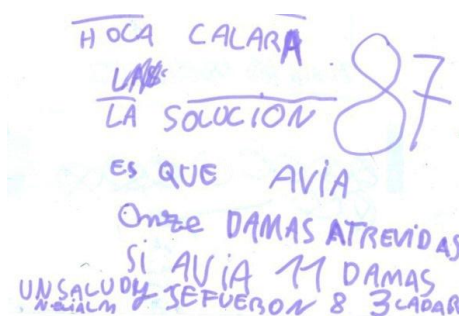 HOLA CALARA
LA SOLUCION 87
ES QUE AVIA
Onze DAMAS ATREVIDAS
SI AVIA 11 DAMAS
UN SALUDO Y SE FUERON 8 3